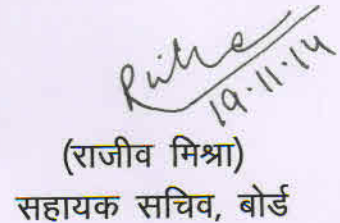 19.11.14
(राजीव मिश्रा)
सहायक सचिव, बोर्ड